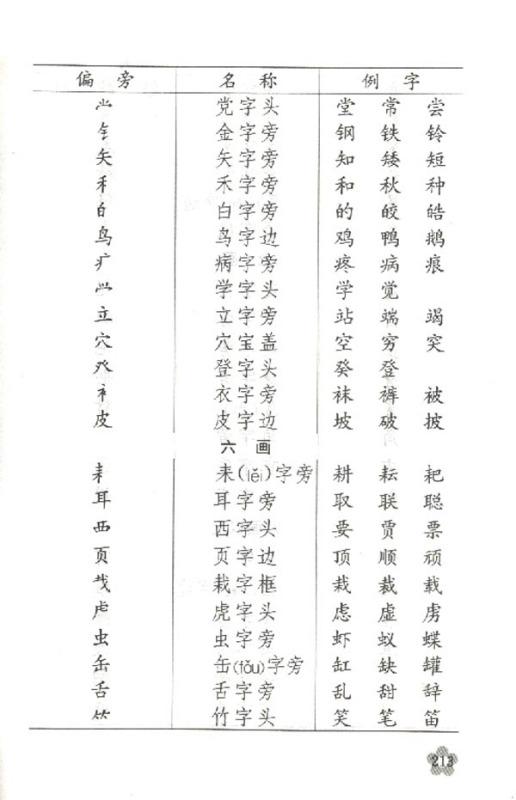 偏旁 名称 例字
⺌ 党字头 堂 常 尝
钅 金字旁 钢 铁 铃
矢 矢字旁 知 矮 短
禾 禾字旁 和 秋 种
白 白字旁 的 皎 皓
鸟 鸟字边 鸡 鸭 鹅
疒 病字旁 疼 病 痕
𰃮 学字头 学 觉
立 立字旁 站 端 竭
穴 穴宝盖 空 穷 突
癶 登字头 癸 登
衤 衣字旁 袜 裤 被
皮 皮字边 坡 破 披
六画
耒 耒(lěi)字旁 耕 耘 耙
耳 耳字旁 取 联 聪
覀 西字头 要 贾 票
页 页字边 顶 顺 顽
𢦏 栽字框 栽 裁 载
虍 虎字头 虑 虚 虏
虫 虫字旁 虾 蚁 蝶
缶 缶(fǒu)字旁 缸 缺 罐
舌 舌字旁 乱 甜 辞
⺮ 竹字头 笑 笔 笛
213